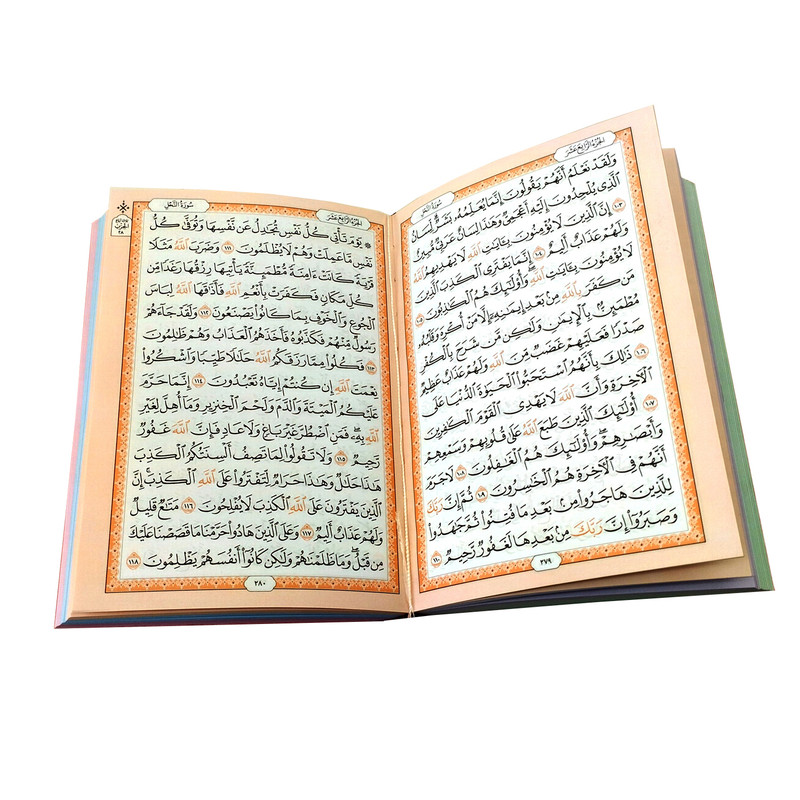 الجزء الرابع عشر
سورة النحل
وَلَقَدْ نَعْلَمُ أَنَّهُمْ يَقُولُونَ إِنَّمَا يُعَلِّمُهُۥ بَشَرٌ لِّسَانُ
ٱلَّذِى يُلْحِدُونَ إِلَيْهِ أَعْجَمِىٌّ وَهَٰذَا لِسَانٌ عَرَبِىٌّ مُّبِينٌ
١٠٣ إِنَّ ٱلَّذِينَ لَا يُؤْمِنُونَ بِـَٔايَٰتِ ٱللَّهِ لَا يَهْدِيهِمُ ٱللَّهُ
وَلَهُمْ عَذَابٌ أَلِيمٌ ١٠٤ إِنَّمَا يَفْتَرِى ٱلْكَذِبَ ٱلَّذِينَ
لَا يُؤْمِنُونَ بِـَٔايَٰتِ ٱللَّهِ وَأُو۟لَٰٓئِكَ هُمُ ٱلْكَٰذِبُونَ ١٠٥
مَن كَفَرَ بِٱللَّهِ مِنۢ بَعْدِ إِيمَٰنِهِۦٓ إِلَّا مَنْ أُكْرِهَ وَقَلْبُهُۥ
مُطْمَئِنٌّۢ بِٱلْإِيمَٰنِ وَلَٰكِن مَّن شَرَحَ بِٱلْكُفْرِ
صَدْرًا فَعَلَيْهِمْ غَضَبٌ مِّنَ ٱللَّهِ وَلَهُمْ عَذَابٌ عَظِيمٌ
١٠٦ ذَٰلِكَ بِأَنَّهُمُ ٱسْتَحَبُّوا۟ ٱلْحَيَوٰةَ ٱلدُّنْيَا عَلَى
ٱلْءَاخِرَةِ وَأَنَّ ٱللَّهَ لَا يَهْدِى ٱلْقَوْمَ ٱلْكَٰفِرِينَ
١٠٧ أُو۟لَٰٓئِكَ ٱلَّذِينَ طَبَعَ ٱللَّهُ عَلَىٰ قُلُوبِهِمْ وَسَمْعِهِمْ
وَأَبْصَٰرِهِمْ وَأُو۟لَٰٓئِكَ هُمُ ٱلْغَٰفِلُونَ ١٠٨ لَا جَرَمَ
أَنَّهُمْ فِى ٱلْءَاخِرَةِ هُمُ ٱلْخَٰسِرُونَ ١٠٩ ثُمَّ إِنَّ رَبَّكَ
لِلَّذِينَ هَاجَرُوا۟ مِنۢ بَعْدِ مَا فُتِنُوا۟ ثُمَّ جَٰهَدُوا۟
وَصَبَرُوٓا۟ إِنَّ رَبَّكَ مِنۢ بَعْدِهَا لَغَفُورٌ رَّحِيمٌ ١١٠
٢٧٩
الجزء الرابع عشر
سورة النحل
الحزب
٢٨
۞ يَوْمَ تَأْتِى كُلُّ نَفْسٍ تُجَٰدِلُ عَن نَّفْسِهَا وَتُوَفَّىٰ كُلُّ
نَفْسٍ مَّا عَمِلَتْ وَهُمْ لَا يُظْلَمُونَ ١١١ وَضَرَبَ ٱللَّهُ مَثَلًا
قَرْيَةً كَانَتْ ءَامِنَةً مُّطْمَئِنَّةً يَأْتِيهَا رِزْقُهَا رَغَدًا مِّن
كُلِّ مَكَانٍ فَكَفَرَتْ بِأَنْعُمِ ٱللَّهِ فَأَذَٰقَهَا ٱللَّهُ لِبَاسَ
ٱلْجُوعِ وَٱلْخَوْفِ بِمَا كَانُوا۟ يَصْنَعُونَ ١١٢ وَلَقَدْ جَآءَهُمْ
رَسُولٌ مِّنْهُمْ فَكَذَّبُوهُ فَأَخَذَهُمُ ٱلْعَذَابُ وَهُمْ ظَٰلِمُونَ
١١٣ فَكُلُوا۟ مِمَّا رَزَقَكُمُ ٱللَّهُ حَلَٰلًا طَيِّبًا وَٱشْكُرُوا۟
نِعْمَتَ ٱللَّهِ إِن كُنتُمْ إِيَّاهُ تَعْبُدُونَ ١١٤ إِنَّمَا حَرَّمَ
عَلَيْكُمُ ٱلْمَيْتَةَ وَٱلدَّمَ وَلَحْمَ ٱلْخِنزِيرِ وَمَآ أُهِلَّ لِغَيْرِ
ٱللَّهِ بِهِۦ فَمَنِ ٱضْطُرَّ غَيْرَ بَاغٍ وَلَا عَادٍ فَإِنَّ ٱللَّهَ غَفُورٌ
رَّحِيمٌ ١١٥ وَلَا تَقُولُوا۟ لِمَا تَصِفُ أَلْسِنَتُكُمُ ٱلْكَذِبَ
هَٰذَا حَلَٰلٌ وَهَٰذَا حَرَامٌ لِّتَفْتَرُوا۟ عَلَى ٱللَّهِ ٱلْكَذِبَ إِنَّ
ٱلَّذِينَ يَفْتَرُونَ عَلَى ٱللَّهِ ٱلْكَذِبَ لَا يُفْلِحُونَ ١١٦ مَتَٰعٌ قَلِيلٌ
وَلَهُمْ عَذَابٌ أَلِيمٌ ١١٧ وَعَلَى ٱلَّذِينَ هَادُوا۟ حَرَّمْنَا مَا قَصَصْنَا عَلَيْكَ
مِن قَبْلُ وَمَا ظَلَمْنَٰهُمْ وَلَٰكِن كَانُوٓا۟ أَنفُسَهُمْ يَظْلِمُونَ ١١٨
٢٨٠